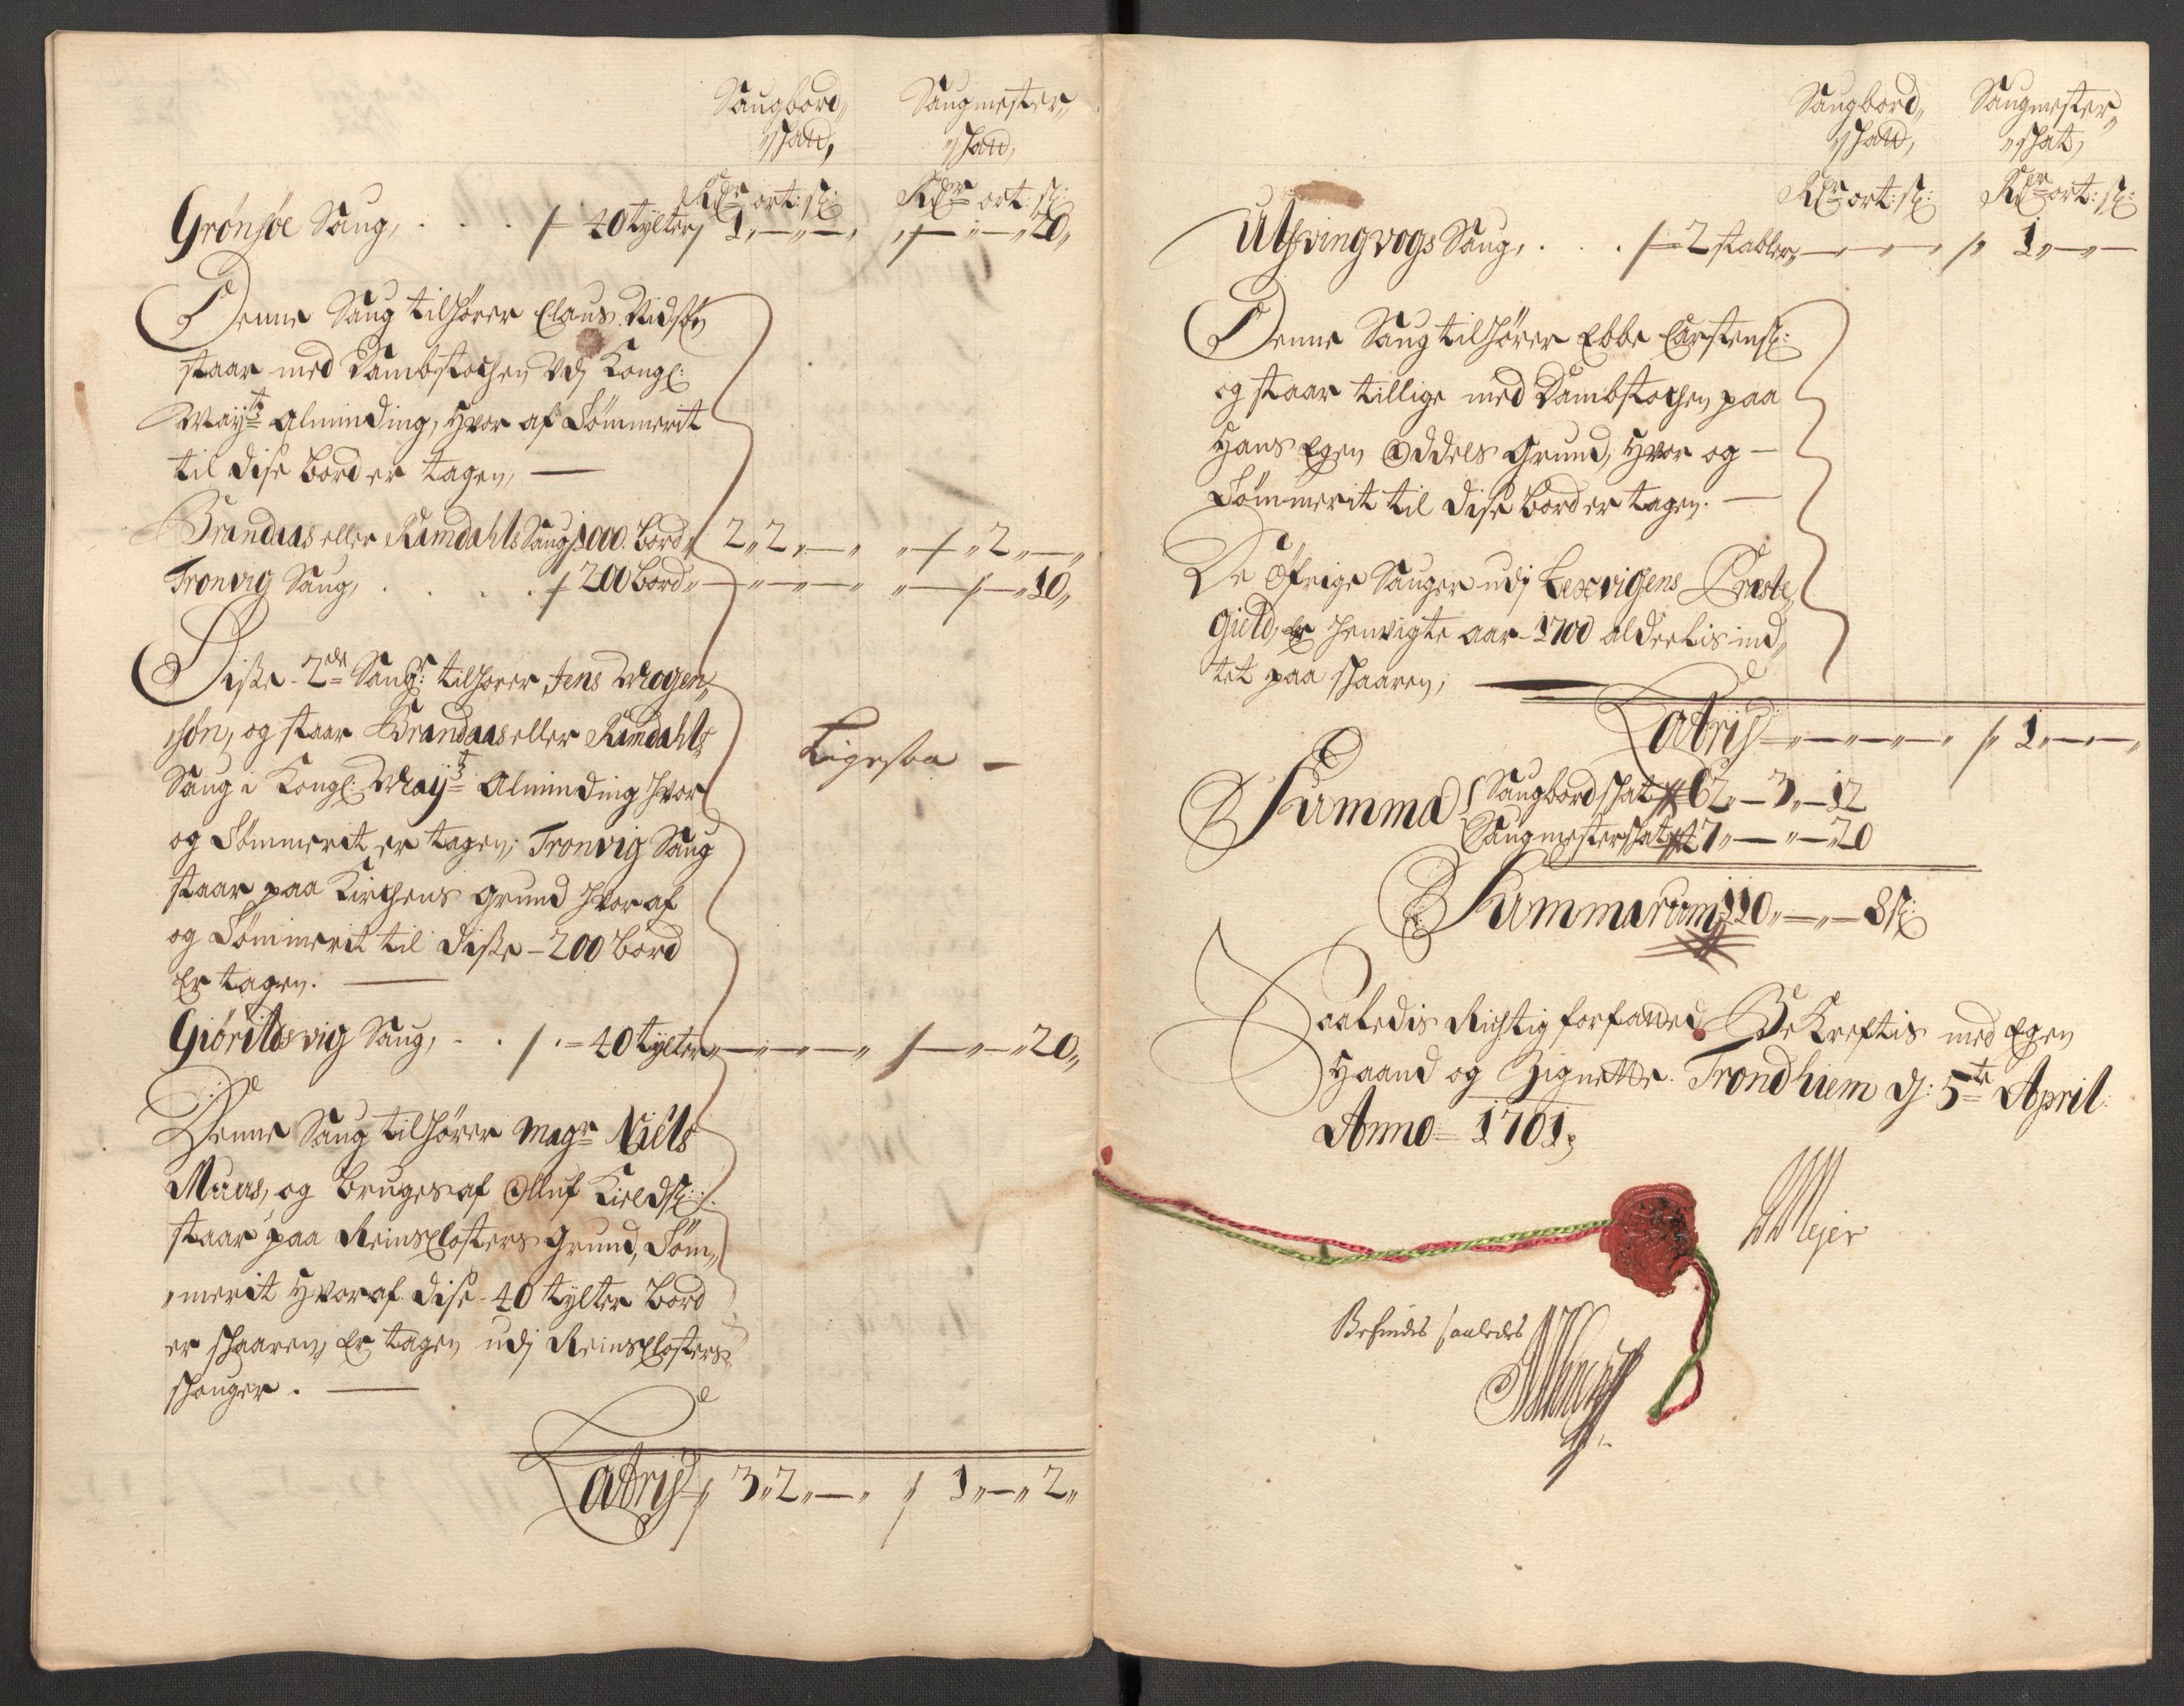 Saugbord, Saugmester,
skatt, skatt,
Rdr ort: s: Rdr ort: s:
Grönsöe Saug, . . . / 40 tylter, 1,,—,,—,, ,,—,,—20,,
Denne Saug tilhörer Claus Nidsøn
staar med Dambstochen Vdj Kongl:
Mayts Alminding, hvor af Tömmerit
til dise bord er tagen, —
Brandaas eller Ramdahls Saug, 1000. Bord,, 2,,2,,—,, ,,—,,2,,—,,
Tronvig Saug, . . . . / 200 Bord,,—,,—,,—,, ,,—,,—10,,
Disse 2de Saug: tilhører Jens Mogen,
søn, og staar Brandaas eller Ramdahls
Saug i Kongl: Mayts Alminding hvor
og Tömmerit er tagen, Tronvig Saug
staar paa Kirchens grund hvor af
og Tömmerit til disse – 200 bord
Er tagen. —
Ligesaa —
Giörildsvig Saug, . . / 40 tylter,,—,,—,,—,, /—,,—,,20,,
Denne Saug tilhörer Magr Niels
Muus, og bruges af Olluf Kieldss:
staar paa Reinsclosters grund, Töm,,
,,merit hvoraf dise 40 tylter bord
er skaaren, Er tagen udj Reinsclosters
skouger. —
Latris / 3,,2,,—,, / 1,,—,,2,,
Saugbord, Saugmester,
skatt, skat,
Rdr ort: s: Rdr ort: s:
Utsvingvogs Saug, . . . / 2 stabler,,—,,—,,—,, / 1,,—,,—
Denne Saug tilhörer Ebbe Carstens:
og staar tillige med Dambstochen paa
hans Egen Oddels Grund, hvor og —
Tömmerit til dise bord er tagen. —
De Öfrige Sauger udj Lexvigens Præste,,
Gield, Er henvigte aar 1700 aldeelis ind,,
tet paa skaaren; —
Latris —,,—,,—,,— / 1,,—,,—
Summa Saugbordskat 62,,—3,,—12
Saugmesterskat 47,,—,,—20
Summarum 110,,—,,—8s:
Saaledis Rigtig forfattet, Bekreftis med Egen
Haand og Zignette. Trondhiem dj: 5te April
Anno 1701.
Mejer
Befindes saaledes